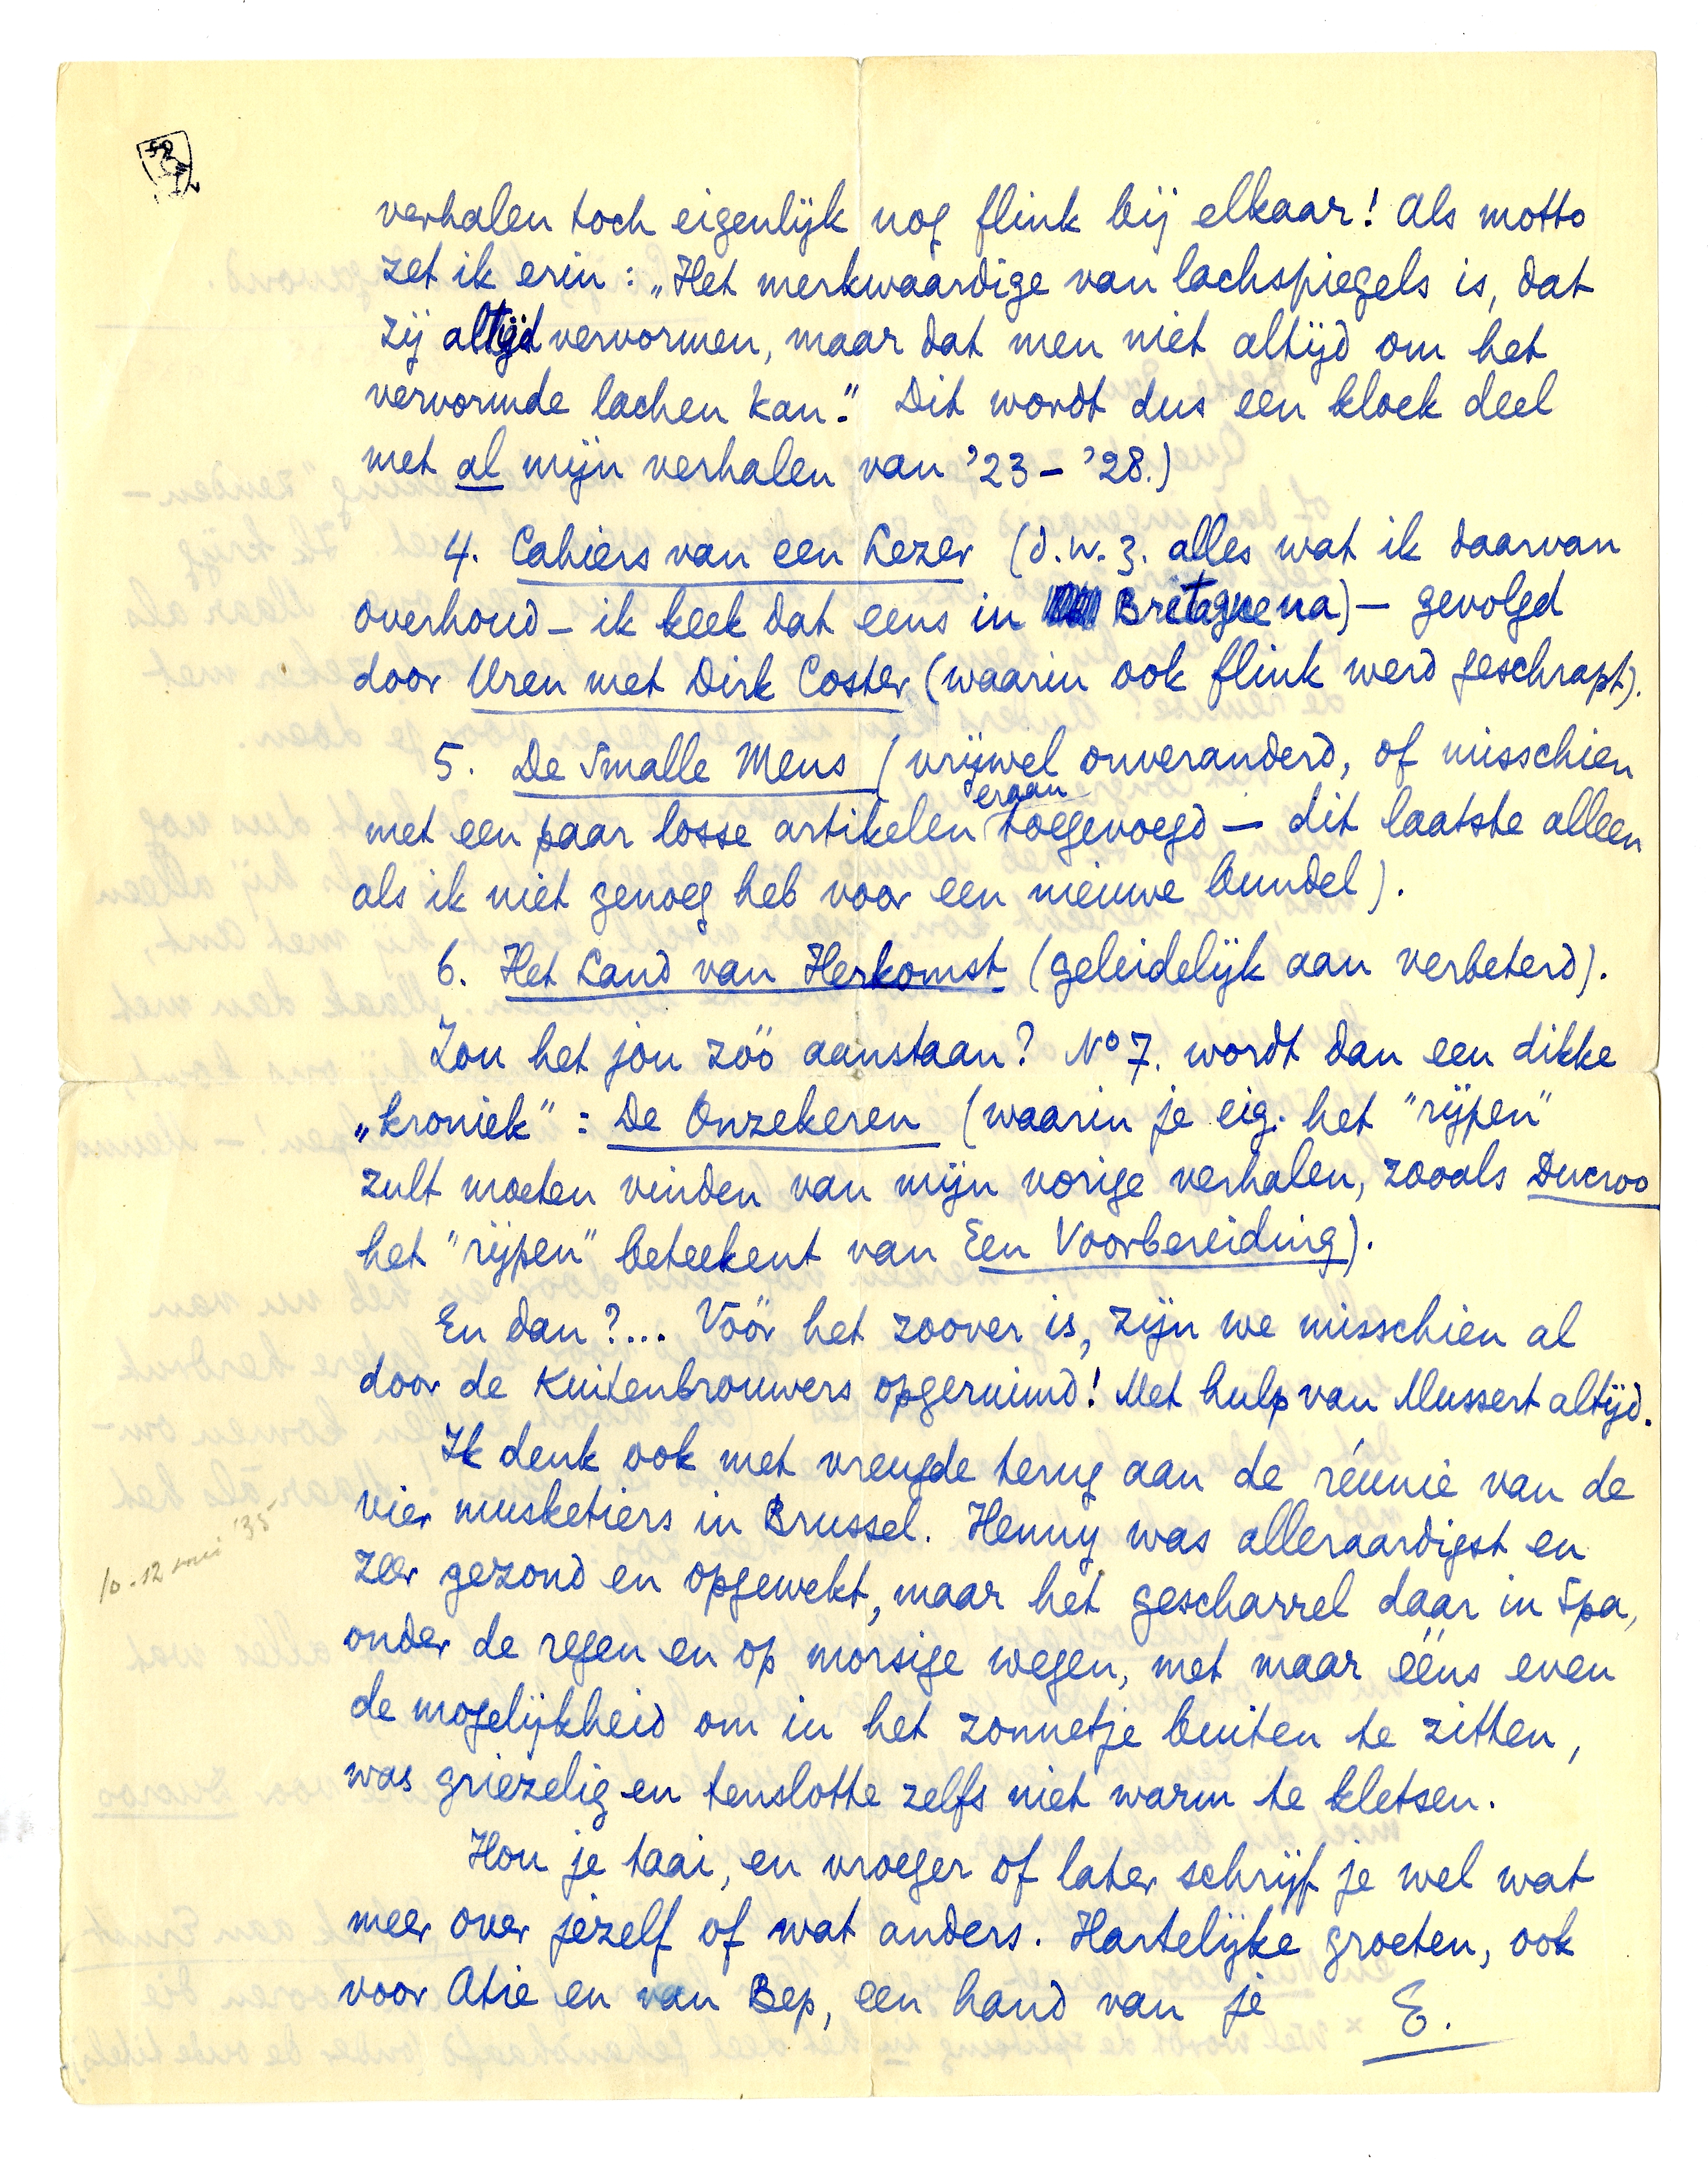 verhalen toch eigenlijk nog flink bij elkaar! Als motto
zet ik erin: „Het merkwaardige van lachspiegels is, dat
zij altijd vervormen, maar dat men niet altijd om het
vervormde lachen kan.” Dit wordt dus een kloek deel
met al mijn verhalen van '23 – '28.)
4. Cahiers van een Lezer (d.w.z. alles wat ik daarvan
overhoud – ik keek dat eens in Bretagne na) – gevolgd
door Uren met Dirk Coster (waarin ook flink werd geschrapt).
5. De Smalle Mens (vrijwel onveranderd, of misschien
met een paar losse artikelen eraan toegevoegd – dit laatste alleen
als ik niet genoeg heb voor een nieuwe bundel).
6. Het Land van Herkomst (geleidelijk aan verbeterd).
Zou het jou zóó aanstaan? No 7. wordt dan een dikke
„kroniek” : De Onzekeren (waarin je eig. het "rijpen"
zult moeten vinden van mijn vorige verhalen, zooals Ducroo
het "rijpen" beteekent van Een Voorbereiding).
En dan?... Vóór het zoover is, zijn we misschien al
door de Kuitenbrouwers opgeruimd! Met hulp van Mussert altijd.
Ik denk ook met vreugde terug aan de réunie van de
vier musketiers in Brussel. Henny was alleraardigst en
zeer gezond en opgewekt, maar het gescharrel daar in Spa,
onder de regen en op morsige wegen, met maar ééns even
de mogelijkheid om in het zonnetje buiten te zitten,
was griezelig en tenslotte zelfs niet warm te kletsen.
Hou je taai, en vroeger of later schrijf je wel wat
meer over jezelf of wat anders. Hartelijke groeten, ook
voor Atie en van Bep, een hand van je E.
10-12 mei '35